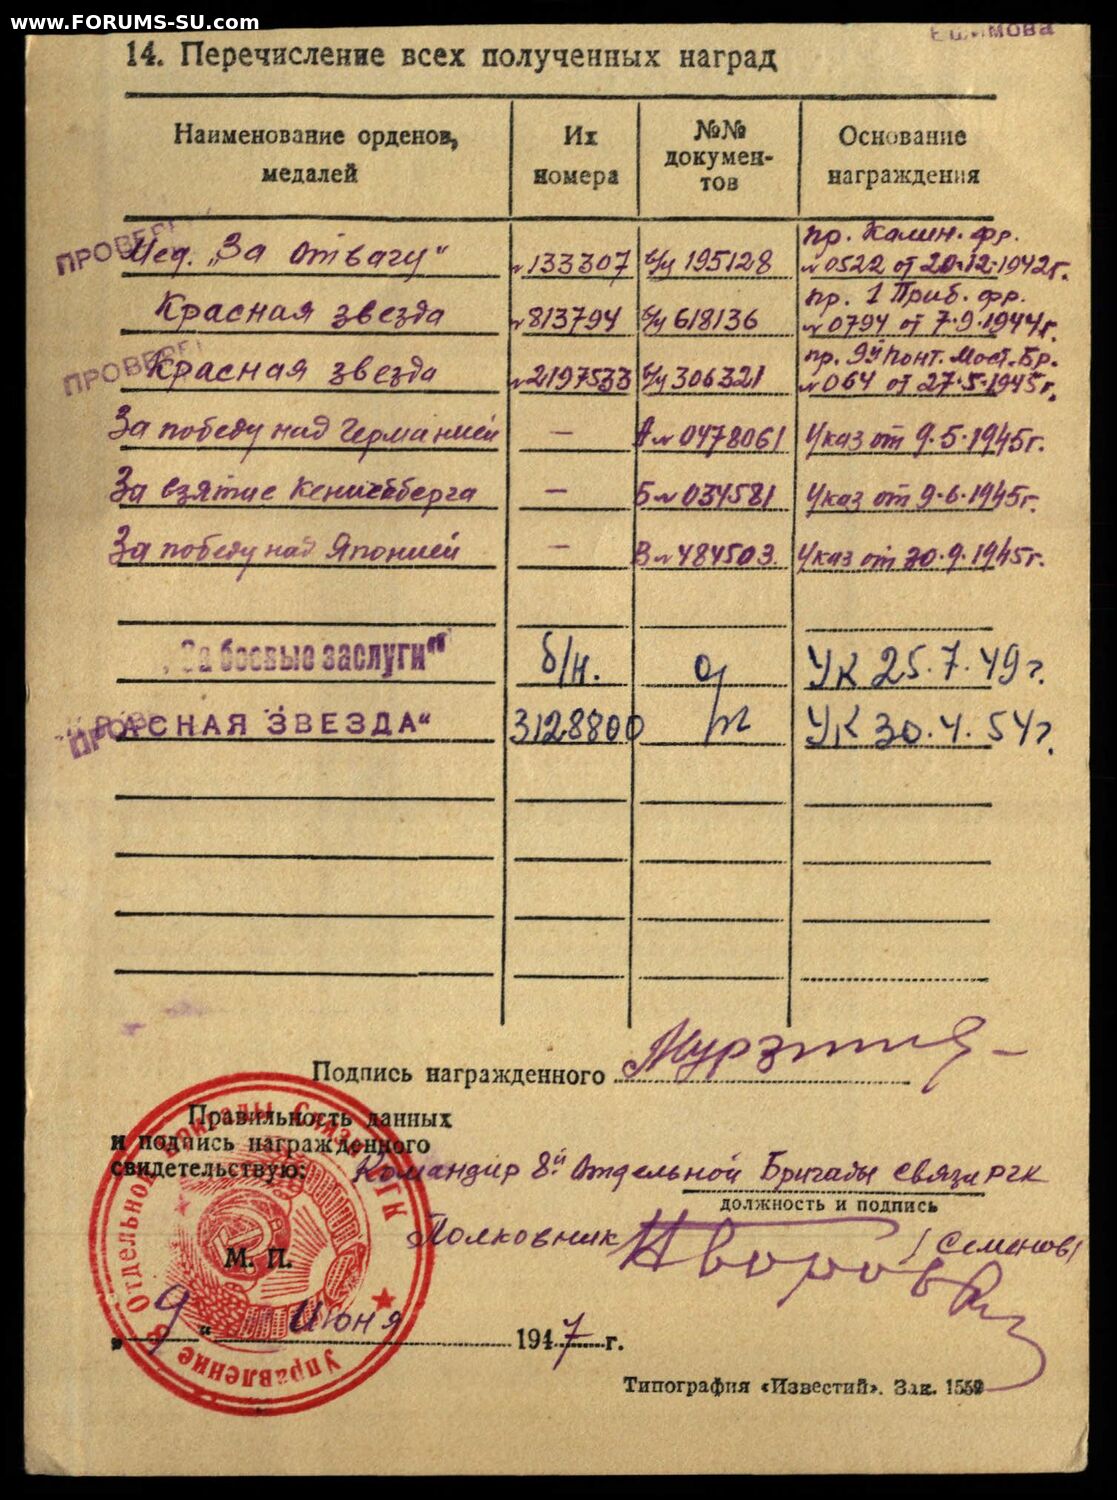 www.FORUMS-SU.com
14. Перечисление всех полученных наград
Наименование орденов, медалей | Их номера | №№ документов | Основание награждения
ПРОВЕРЕ
Мед. „За Отвагу“ | №133307 | б/ц 195128 | пр. Калин. фр. №0522 от 20.12.1942г.
Красная звезда | №813794 | б/ц 618136 | пр. 1 Приб. фр. №0794 от 7.9.1944г.
ПРОВЕРЕ
Красная звезда | №2197533 | б/ц 306321 | пр. 9й Понт. Мост. Бр. №064 от 27.5.1945г.
За победу над Германией | — | А №0478061 | Указ от 9.5.1945г.
За взятие Кенигсберга | — | Б №034581 | Указ от 9.6.1945г.
За победу над Японией | — | В №484503. | Указ от 30.9.1945г.
„За боевые заслуги“ | б/н. | УК 25.7.49г.
„КРАСНАЯ ЗВЕЗДА“ | 3128800 | УК 30.4.54г.
Подпись награжденного
Правильность данных
и подпись награжденного
свидетельствую: Командир 8й Отдельной Бригады связи РГК
должность и подпись
Полковник (Семенов)
М. П.
„9“ Июня 1947 г.
Управление 8 Отдельной Бригады Связи РГК
Типография «Известий». Зак. 1559